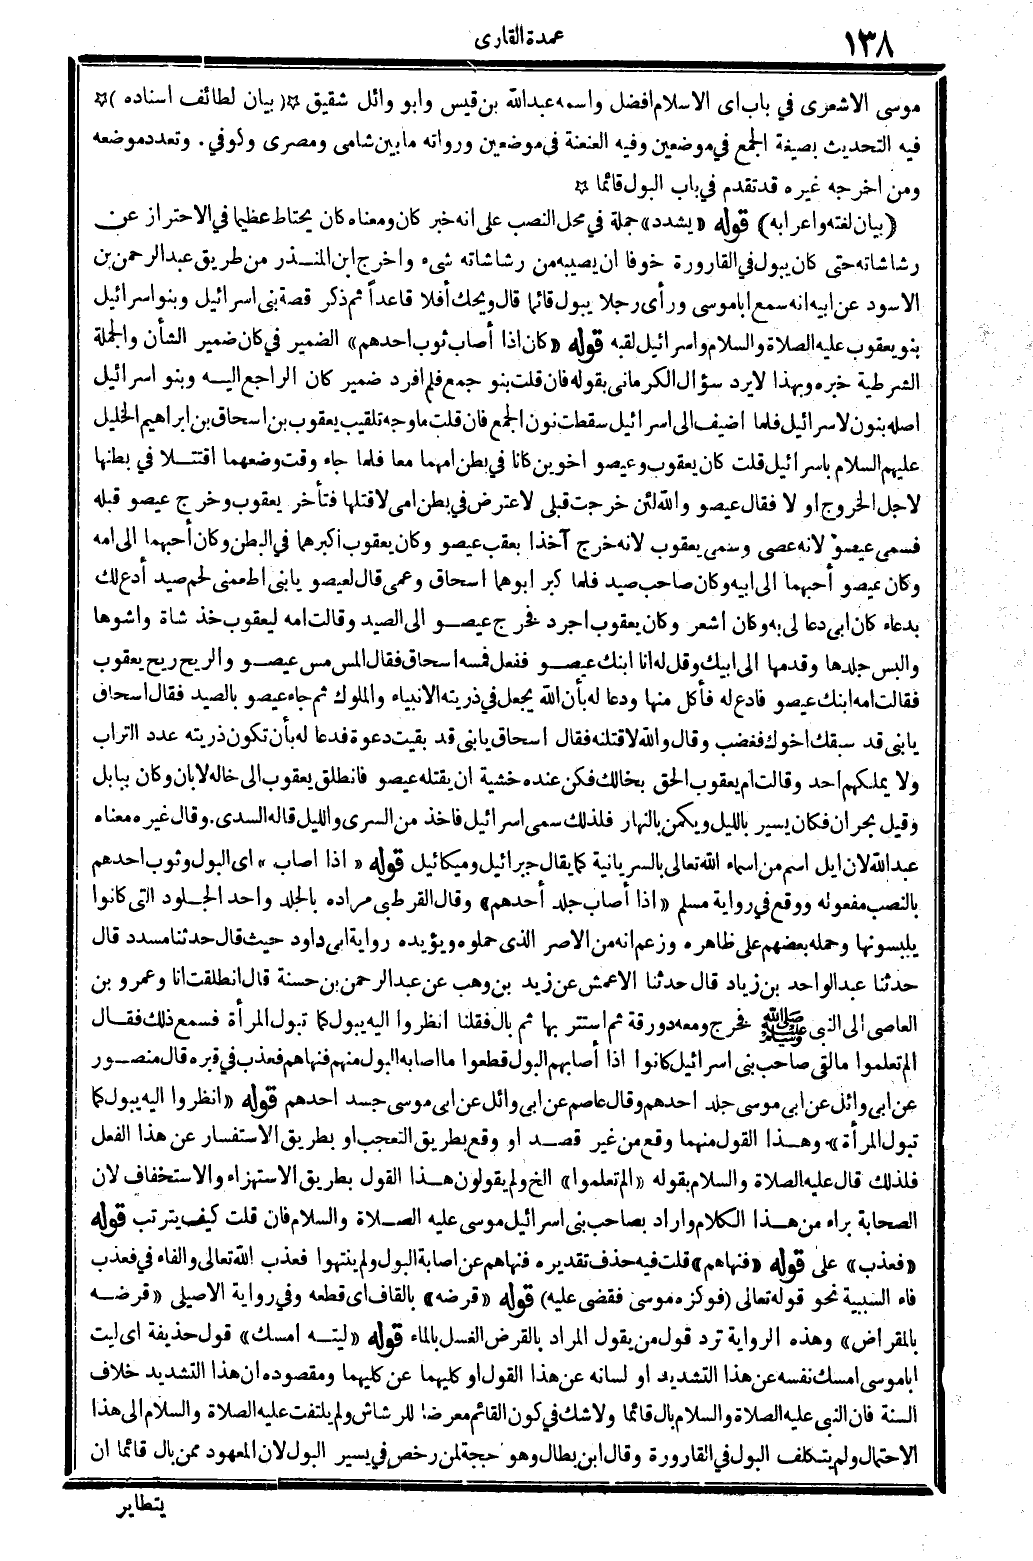 ١٣٨
عمدة القارى
موسى الاشعرى في باب اى الاسلام افضل واسمه عبدالله بن قيس وابو وائل شقيق ☆ (بيان لطائف اسناده) ☆
فيه التحديث بصيغة الجمع في موضعين وفيه العنعنة في موضعين ورواته ما بين شامى ومصرى وكوفي . وتعدد موضعه
ومن اخرجه غيره قد تقدم في باب البول قائما ☆
(بيان لغته واعرابه) قوله «يشدد» جملة في محل النصب على انه خبر كان ومعناه كان يحتاط عظيما في الاحتراز عن
رشاشاته حتى كان يبول في القارورة خوفا ان يصيبه من رشاشاته شىء واخرج ابن المنذر من طريق عبدالرحمن بن
الاسود عن ابيه انه سمع اباموسى ورأى رجلا يبول قائما قال ويحك أفلا قاعداً ثم ذكر قصة بنى اسرائيل وبنو اسرائيل
بنو يعقوب عليه الصلاة والسلام واسرائيل لقبه قوله «كان اذا أصاب ثوب احدهم» الضمير في كان ضمير الشأن والجملة
الشرطية خبره وبهذا لايرد سؤال الكرمانى بقوله فان قلت بنو جمع فلم افرد ضمير كان الراجع اليه وبنو اسرائيل
اصله بنون لاسرائيل فلما اضيف الى اسرائيل سقطت نون الجمع فان قلت ما وجه تلقيب يعقوب بن اسحاق بن ابراهيم الخليل
عليهم السلام باسرائيل قلت كان يعقوب وعيصو اخوين كانا في بطن امهما معا فلما جاء وقت وضعهما اقتتلا في بطنها
لاجل الخروج او لا فقال عيصو والله لئن خرجت قبلى لاعترض في بطن امى لاقتلها فتأخر يعقوب وخرج عيصو قبله
فسمى عيصو لانه عصى وسمى يعقوب لانه خرج آخذا بعقب عيصو وكان يعقوب اكبرهما في البطن وكان أحبهما الى امه
وكان عيصو أحبهما الى ابيه وكان صاحب صيد فلما كبر ابوهما اسحاق وعمى قال لعيصو يابنى اطعمنى لحم صيد أدع لك
بدعاء كان ابى دعا لى به وكان اشعر وكان يعقوب اجرد فخرج عيصو الى الصيد وقالت امه ليعقوب خذ شاة واشوها
والبس جلدها وقدمها الى ابيك وقل له انا ابنك عيصو ففعل فمسه اسحاق فقال المس مس عيصو والريح ريح يعقوب
فقالت امه ابنك عيصو فادع له فأكل منها ودعا له بأن الله يجعل في ذريته الانبياء والملوك ثم جاء عيصو بالصيد فقال اسحاق
يابنى قد سبقك اخوك فغضب وقال والله لاقتلنه فقال اسحاق يابنى قد بقيت دعوة فدعا له بأن تكون ذريته عدد التراب
ولا يملكهم احد وقالت ام يعقوب الحق بخالك فكن عنده خشية ان يقتله عيصو فانطلق يعقوب الى خاله لابان وكان ببابل
وقيل بحران فكان يسير بالليل ويكمن بالنهار فلذلك سمى اسرائيل فاخذ من السرى والليل قاله السدى . وقال غيره معناه
عبدالله لان ايل اسم من اسماء الله تعالى بالسريانية كما يقال جبرائيل وميكائيل قوله «اذا اصاب» اى البول وثوب احدهم
بالنصب مفعوله ووقع في رواية مسلم «اذا أصاب جلد أحدهم» وقال القرطبى مراده بالجلد واحد الجلود التى كانوا
يلبسونها وحمله بعضهم على ظاهره وزعم انه من الاصر الذى حملوه ويؤيده رواية ابى داود حيث قال حدثنا مسدد قال
حدثنا عبدالواحد بن زياد قال حدثنا الاعمش عن زيد بن وهب عن عبدالرحمن بن حسنة قال انطلقت انا وعمرو بن
العاصى الى النبى ﷺ فخرج ومعه دورقة ثم استتر بها ثم بال فقلنا انظروا اليه يبول كما تبول المرأة فسمع ذلك فقال
الم تعلموا مالقى صاحب بنى اسرائيل كانوا اذا أصابهم البول قطعوا ما اصابه البول منهم فنهاهم فعذب في قبره قال منصور
عن ابى وائل عن ابى موسى جلد احدهم وقال عاصم عن ابى وائل عن ابى موسى جسد احدهم قوله «انظروا اليه يبول كما
تبول المرأة» وهذا القول منهما وقع من غير قصد او وقع بطريق التعجب او بطريق الاستفسار عن هذا الفعل
فلذلك قال عليه الصلاة والسلام بقوله «الم تعلموا» الخ ولم يقولون هذا القول بطريق الاستهزاء والاستخفاف لان
الصحابة براء من هذا الكلام واراد بصاحب بنى اسرائيل موسى عليه الصلاة والسلام فان قلت كيف يترتب قوله
«فعذب» على قوله «فنهاهم» قلت فيه حذف تقديره فنهاهم عن اصابة البول ولم ينتهوا فعذب الله تعالى والفاء في فعذب
فاء السببية نحو قوله تعالى (فوكزه موسى فقضى عليه) قوله «قرضه» بالقاف اى قطعه وفي رواية الاصيلى «قرضه
بالمقراض» وهذه الرواية ترد قول من يقول المراد بالقرض الغسل بالماء قوله «ليته امسك» قول حذيفة اى ليت
اباموسى امسك نفسه عن هذا التشديد او لسانه عن هذا القول او كليهما عن كليهما ومقصوده ان هذا التشديد خلاف
السنة فان النبى عليه الصلاة والسلام بال قائما ولاشك في كون القائم معرضا للرشاش ولم يلتفت عليه الصلاة والسلام الى هذا
الاحتمال ولم يتكلف البول في القارورة وقال ابن بطال وهو حجة لمن رخص في يسير البول لان المعهود ممن بال قائما ان
يتطاير